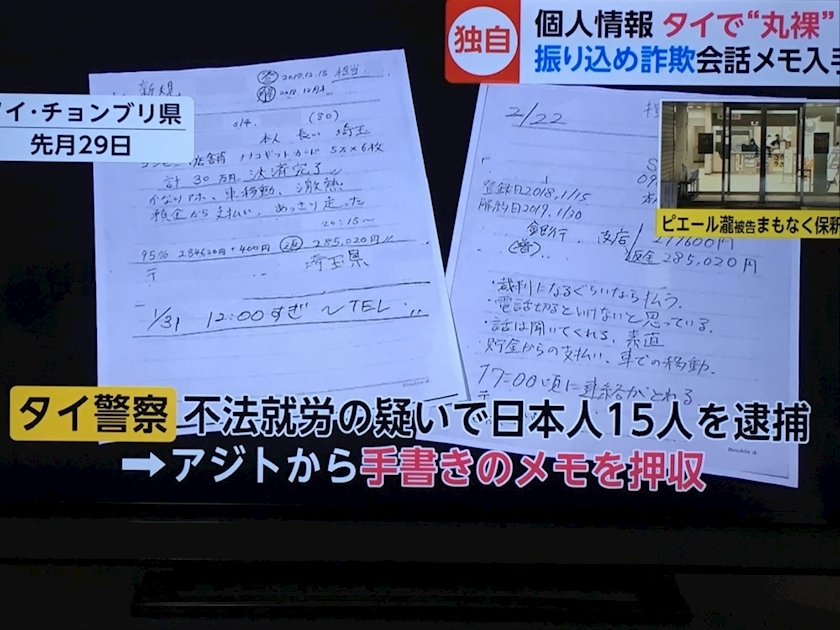 独自
個人情報 タイで“丸裸”
振り込め詐欺会話メモ入手
イ・チョンブリ県
先月29日
ピエール瀧被告まもなく保釈
新規
2017.12.15 担当
(80)
本人 長い 埼玉
5万×6枚
計 30万円 決済完了
かなりアホ、車移動、激熱
預金から支払い、あっさり走った
20:15～
95% 284620円+400円 返 285,020円
〒 埼玉県
1/31 12:00すぎ ～TEL
2/22
登録日2018.1/15
解約日2019.1/30
銀行、支店
返金 285,020円
・裁判になるぐらいなら払う。
・電話切るといけないと思っている。
・話は聞いてくれる、素直
・貯金からの支払い、車での移動。
17:00頃に連絡がとれる
タイ警察 不法就労の疑いで日本人15人を逮捕
➡アジトから手書きのメモを押収